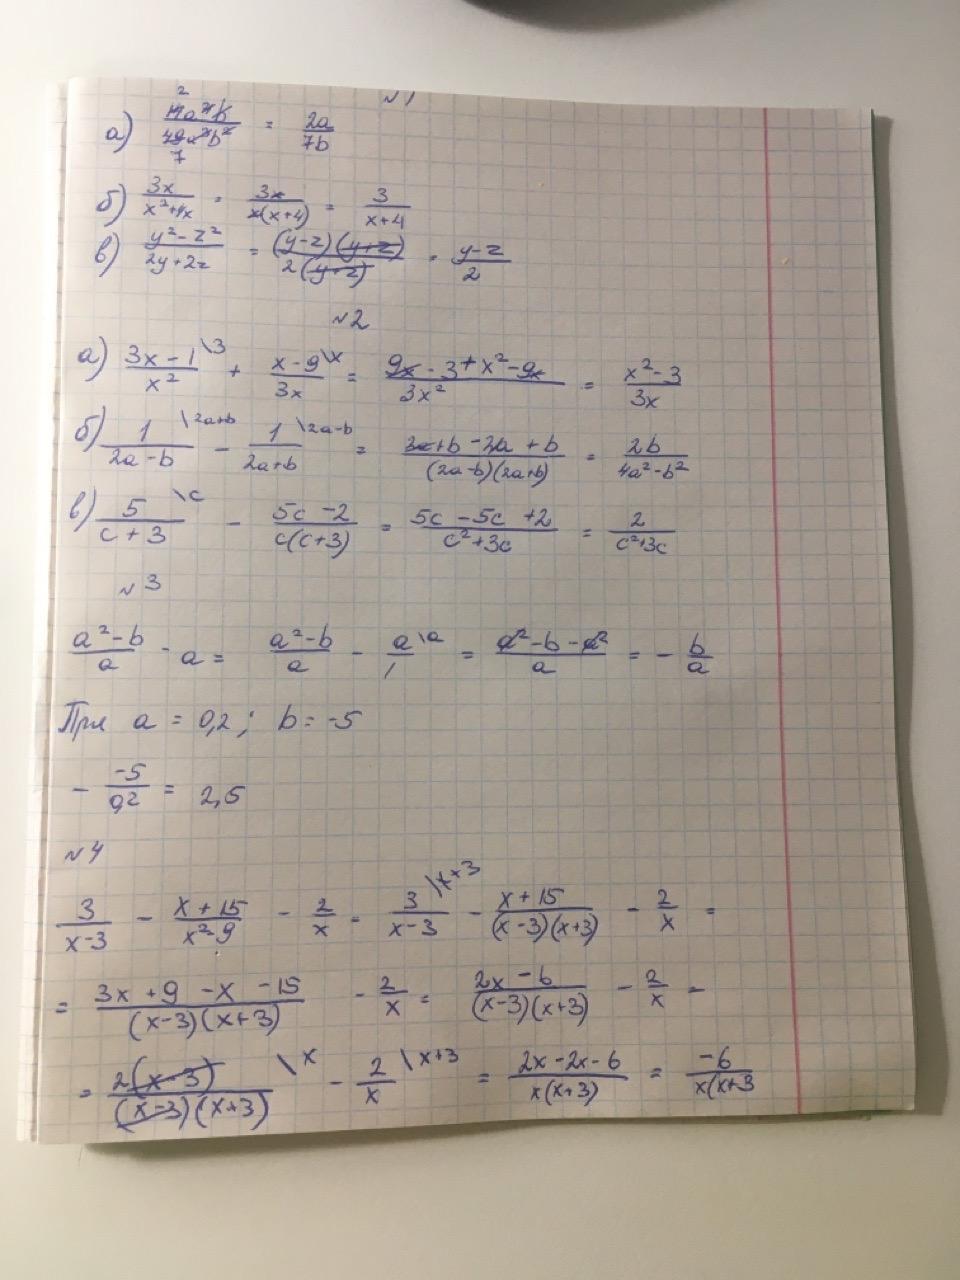 №1
а) 14a⁴b/49a³b² = 2a/7b
2
7
б) 3x/x²+4x = 3x/x(x+4) = 3/x+4
в) y²-z²/2y+2z = (y-z)(y+z)/2(y+z) = y-z/2
№2
а) 3x-1/x² \3 + x-9/3x \x = 9x-3+x²-9x/3x² = x²-3/3x
б) 1/2a-b \2a+b - 1/2a+b \2a-b = 2a+b-2a+b/(2a-b)(2a+b) = 2b/4a²-b²
в) 5/c+3 \c - 5c-2/c(c+3) = 5c-5c+2/c²+3c = 2/c²+3c
№3
a²-b/a - a = a²-b/a - a/1 \a = a²-b-a²/a = - b/a
При a = 0,2; b = -5
- -5/0,2 = 2,5
№4
3/x-3 - x+15/x²-9 - 2/x = 3/x-3 \x+3 - x+15/(x-3)(x+3) - 2/x =
= 3x+9-x-15/(x-3)(x+3) - 2/x = 2x-6/(x-3)(x+3) - 2/x =
= 2(x-3)/(x-3)(x+3) \x - 2/x \x+3 = 2x-2x-6/x(x+3) = -6/x(x+3